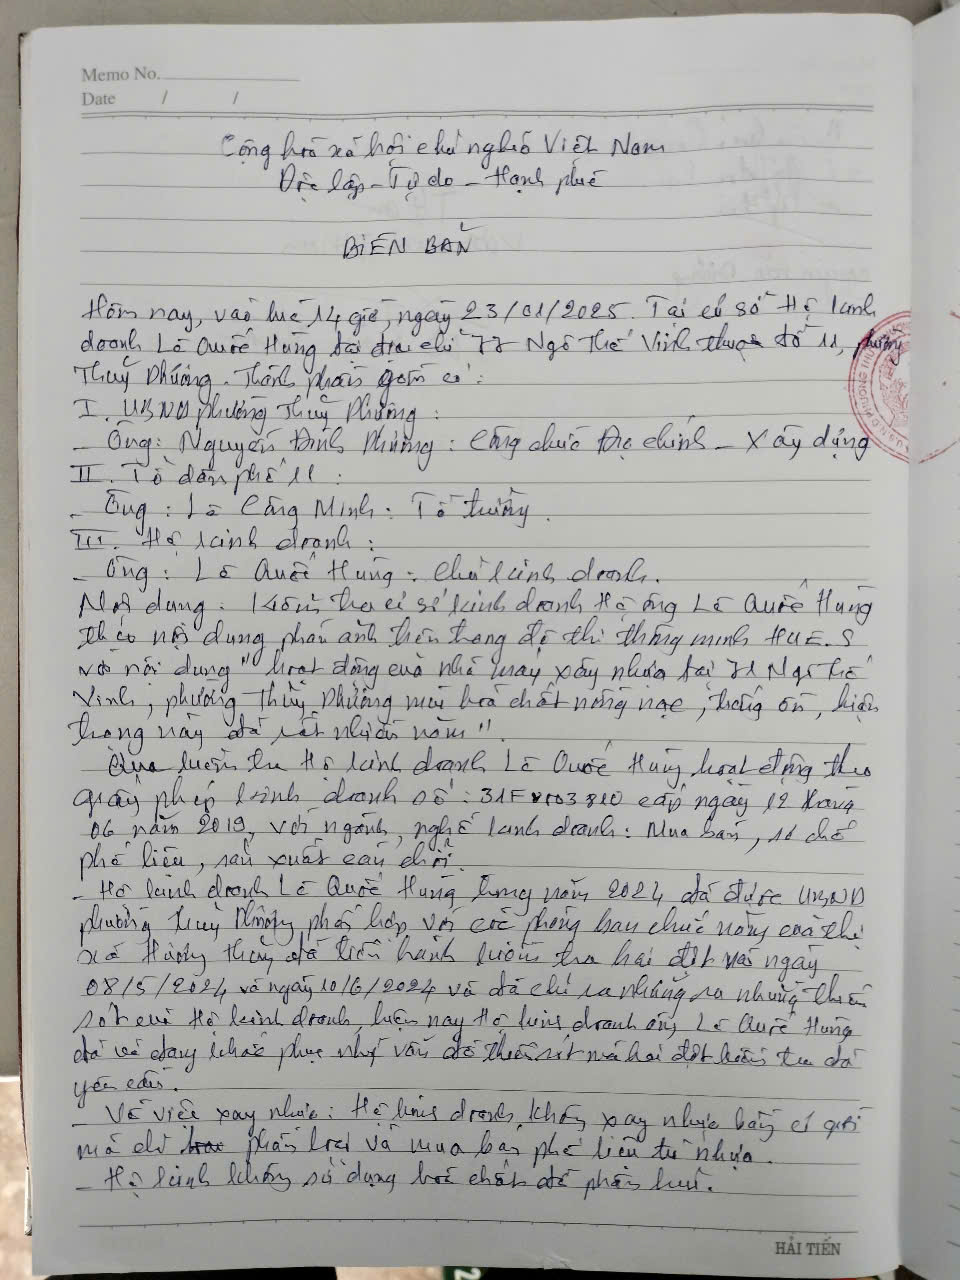 Memo No.
Date / /
Cộng hoà xã hội chủ nghĩa Việt Nam
Độc lập - Tự do - Hạnh phúc
BIÊN BẢN
Hôm nay, vào lúc 14 giờ, ngày 23/01/2025. Tại cơ sở Hộ kinh
doanh Lê Quốc Hùng tại địa chỉ 71 Ngô Thế Vinh thuộc tổ 11, phường
Thuỷ Phương. Thành phần gồm có:
I. UBND phường Thuỷ Phương:
- Ông: Nguyễn Đình Phương: Công chức Địa chính - Xây dựng
II. Tổ dân phố 11:
- Ông: Lê Công Minh: Tổ trưởng.
III. Hộ kinh doanh:
- Ông: Lê Quốc Hùng: Chủ kinh doanh.
Nội dung: Kiểm tra cơ sở kinh doanh Hộ ông Lê Quốc Hùng
theo nội dung phản ánh trên trang đô thị thông minh HUE.S
với nội dung "hoạt động của nhà máy xây nhựa tại 71 Ngô Thế
Vinh, phường Thuỷ Phương mùi hoá chất nồng nặc, tiếng ồn, hiện
trạng này đã rất nhiều năm".
Qua kiểm tra Hộ kinh doanh Lê Quốc Hùng hoạt động theo
giấy phép kinh doanh số: cấp ngày 12 tháng
06 năm 2019, với ngành, nghề kinh doanh: Mua bán, sơ chế
phế liệu, sản xuất cán chổi.
- Hộ kinh doanh Lê Quốc Hùng trong năm 2024 đã được UBND
phường Thuỷ Phương phối hợp với các phòng ban chức năng của thị
xã Hương Thuỷ đã tiến hành kiểm tra hai đợt vào ngày
08/5/2024 và ngày 10/6/2024 và đã chỉ ra những ra những thiếu
sót của Hộ kinh doanh, hiện nay Hộ kinh doanh ông Lê Quốc Hùng
đã và đang khắc phục những vấn đề thiếu sót mà hai đợt kiểm tra đã
yêu cầu.
- Về việc xay nhựa: Hộ kinh doanh không xay nhựa bằng cơ giới
mà chỉ phân loại và mua bán phế liệu từ nhựa.
- Hộ kinh không sử dụng hoá chất để phân huỷ.
HẢI TIẾN